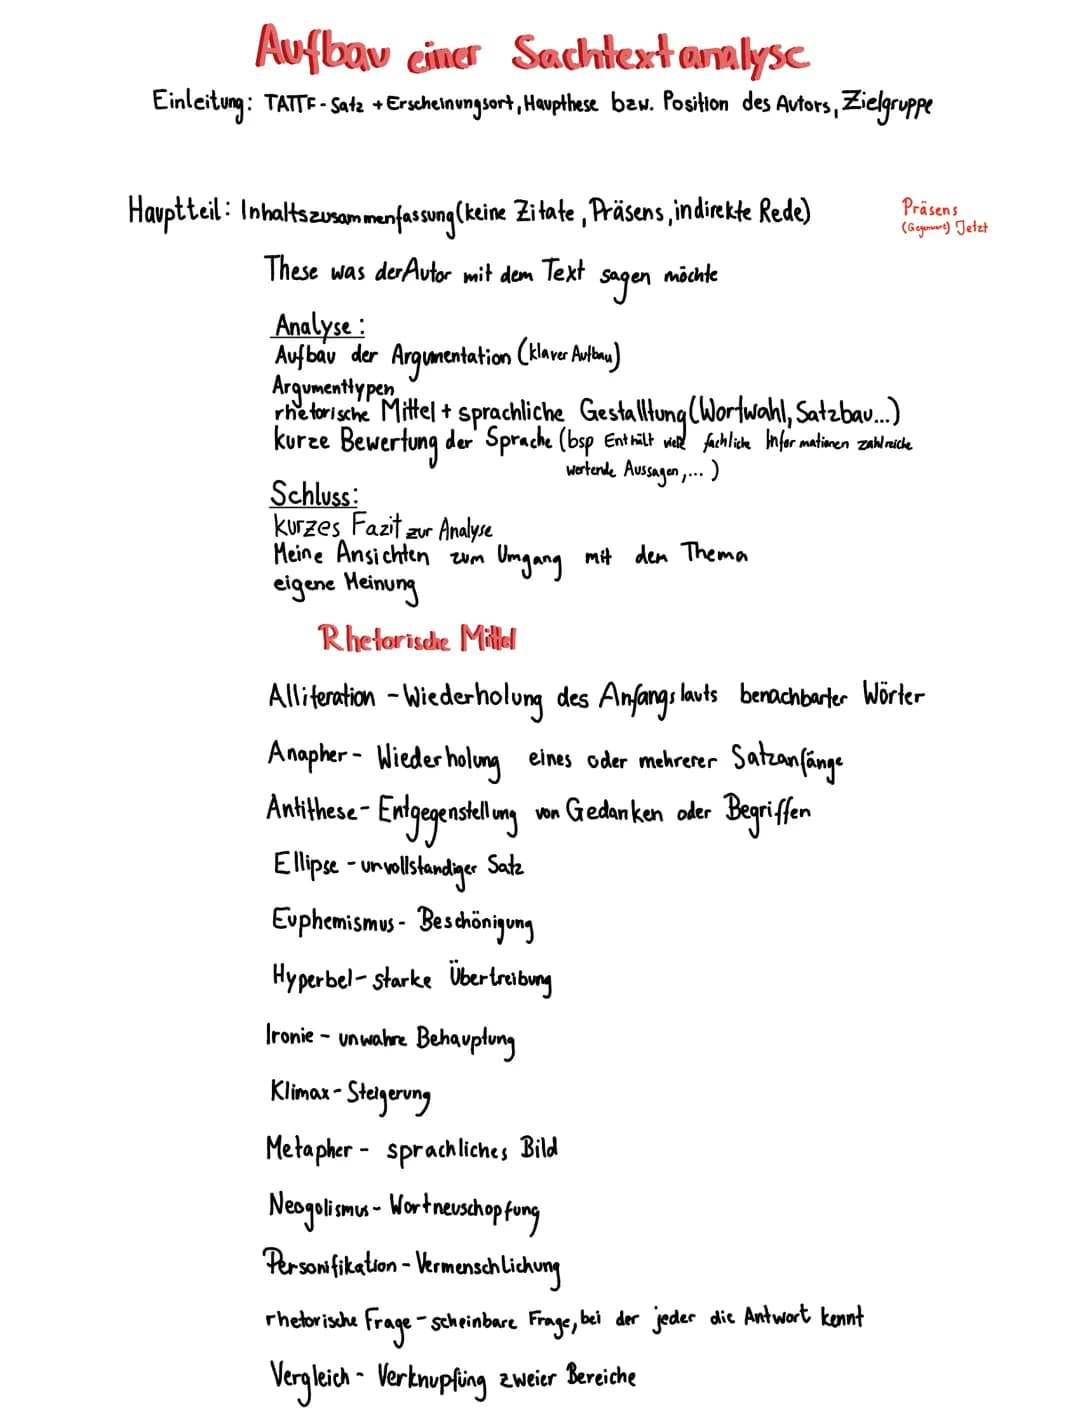 Aufbau einer Sachtextanalyse
Einleitung: TATTF-Satz + Erscheinungsort, Haupthese bzw. Position des Autors, Zielgruppe
Hauptteil: Inhaltszusammenfassung (keine Zitate, Präsens, indirekte Rede)
Präsens
(Gegenwart) Jetzt
These was der Autor mit dem Text sagen möchte
Analyse:
Aufbau der Argumentation (klarer Aufbau)
Argumenttypen
rhetorische Mittel + sprachliche Gestalltung (Wortwahl, Satzbau...)
kurze Bewertung der Sprache (bsp Enthält viele fachliche Informationen zahlreiche
wertende Aussagen,...)
Schluss:
kurzes Fazit zur Analyse
Meine Ansichten zum Umgang mit dem Thema
eigene Meinung
Rhetorische Mittel
Alliteration - Wiederholung des Anfangslauts benachbarter Wörter
Anapher - Wiederholung eines oder mehrerer Satzanfänge
Antithese - Entgegenstellung von Gedanken oder Begriffen
Ellipse - unvollstandiger Satz
Euphemismus - Beschönigung
Hyperbel - starke Übertreibung
Ironie - unwahre Behauptung
Klimax - Steigerung
Metapher - sprachliches Bild
Neogolismus - Wortneuschopfung
Personifikation - Vermenschlichung
rhetorische Frage - scheinbare Frage, bei der jeder die Antwort kennt
Vergleich - Verknupfüng zweier Bereiche